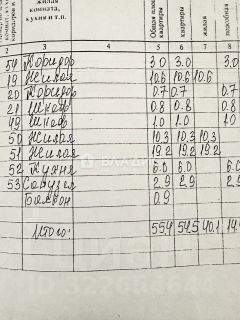 жилая
комната,
кухня и т.п.
Общая площ
квартиры
квартиры
жилая
подсобная
2 3 4 5 6 7 8
54 Коридор 3.0 3.0 3.0
19 Жилая 10.6 10.6 10.6
20 Коридор 0.7 0.7 0.7
21 Шкаф 0.8 0.8 0.8
49 Шкаф 1.0 1.0 1.0
50 Жилая 10.3 10.3 10.3
51 Жилая 19.2 19.2 19.2
52 Кухня 6.0 6.0 6.0
53 Санузел 2.9 2.9 2.9
Балкон 0.9
Итого: 55.4 54.5 40.1 14.4